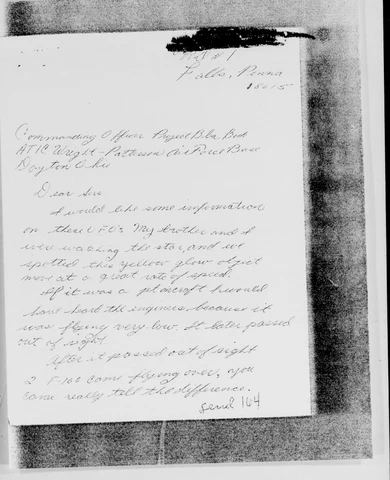 Rd #1
Falls, Penna
18615
Commanding Officer Project Blue Book
ATIC Wright-Patterson Air Force Base
Dayton Ohio
Dear Sir
I would like some information
on these UFO's. My brother and I
were watching the stars, and we
spotted this yellow glow object
move at a great rate of speed.
If it was a jet aircraft he would
have heard the engines, because it
was flying very low. It later passed
out of sight.
After it passed out of sight
2 F-101 came flying over, you
came really tell the difference.
send 164